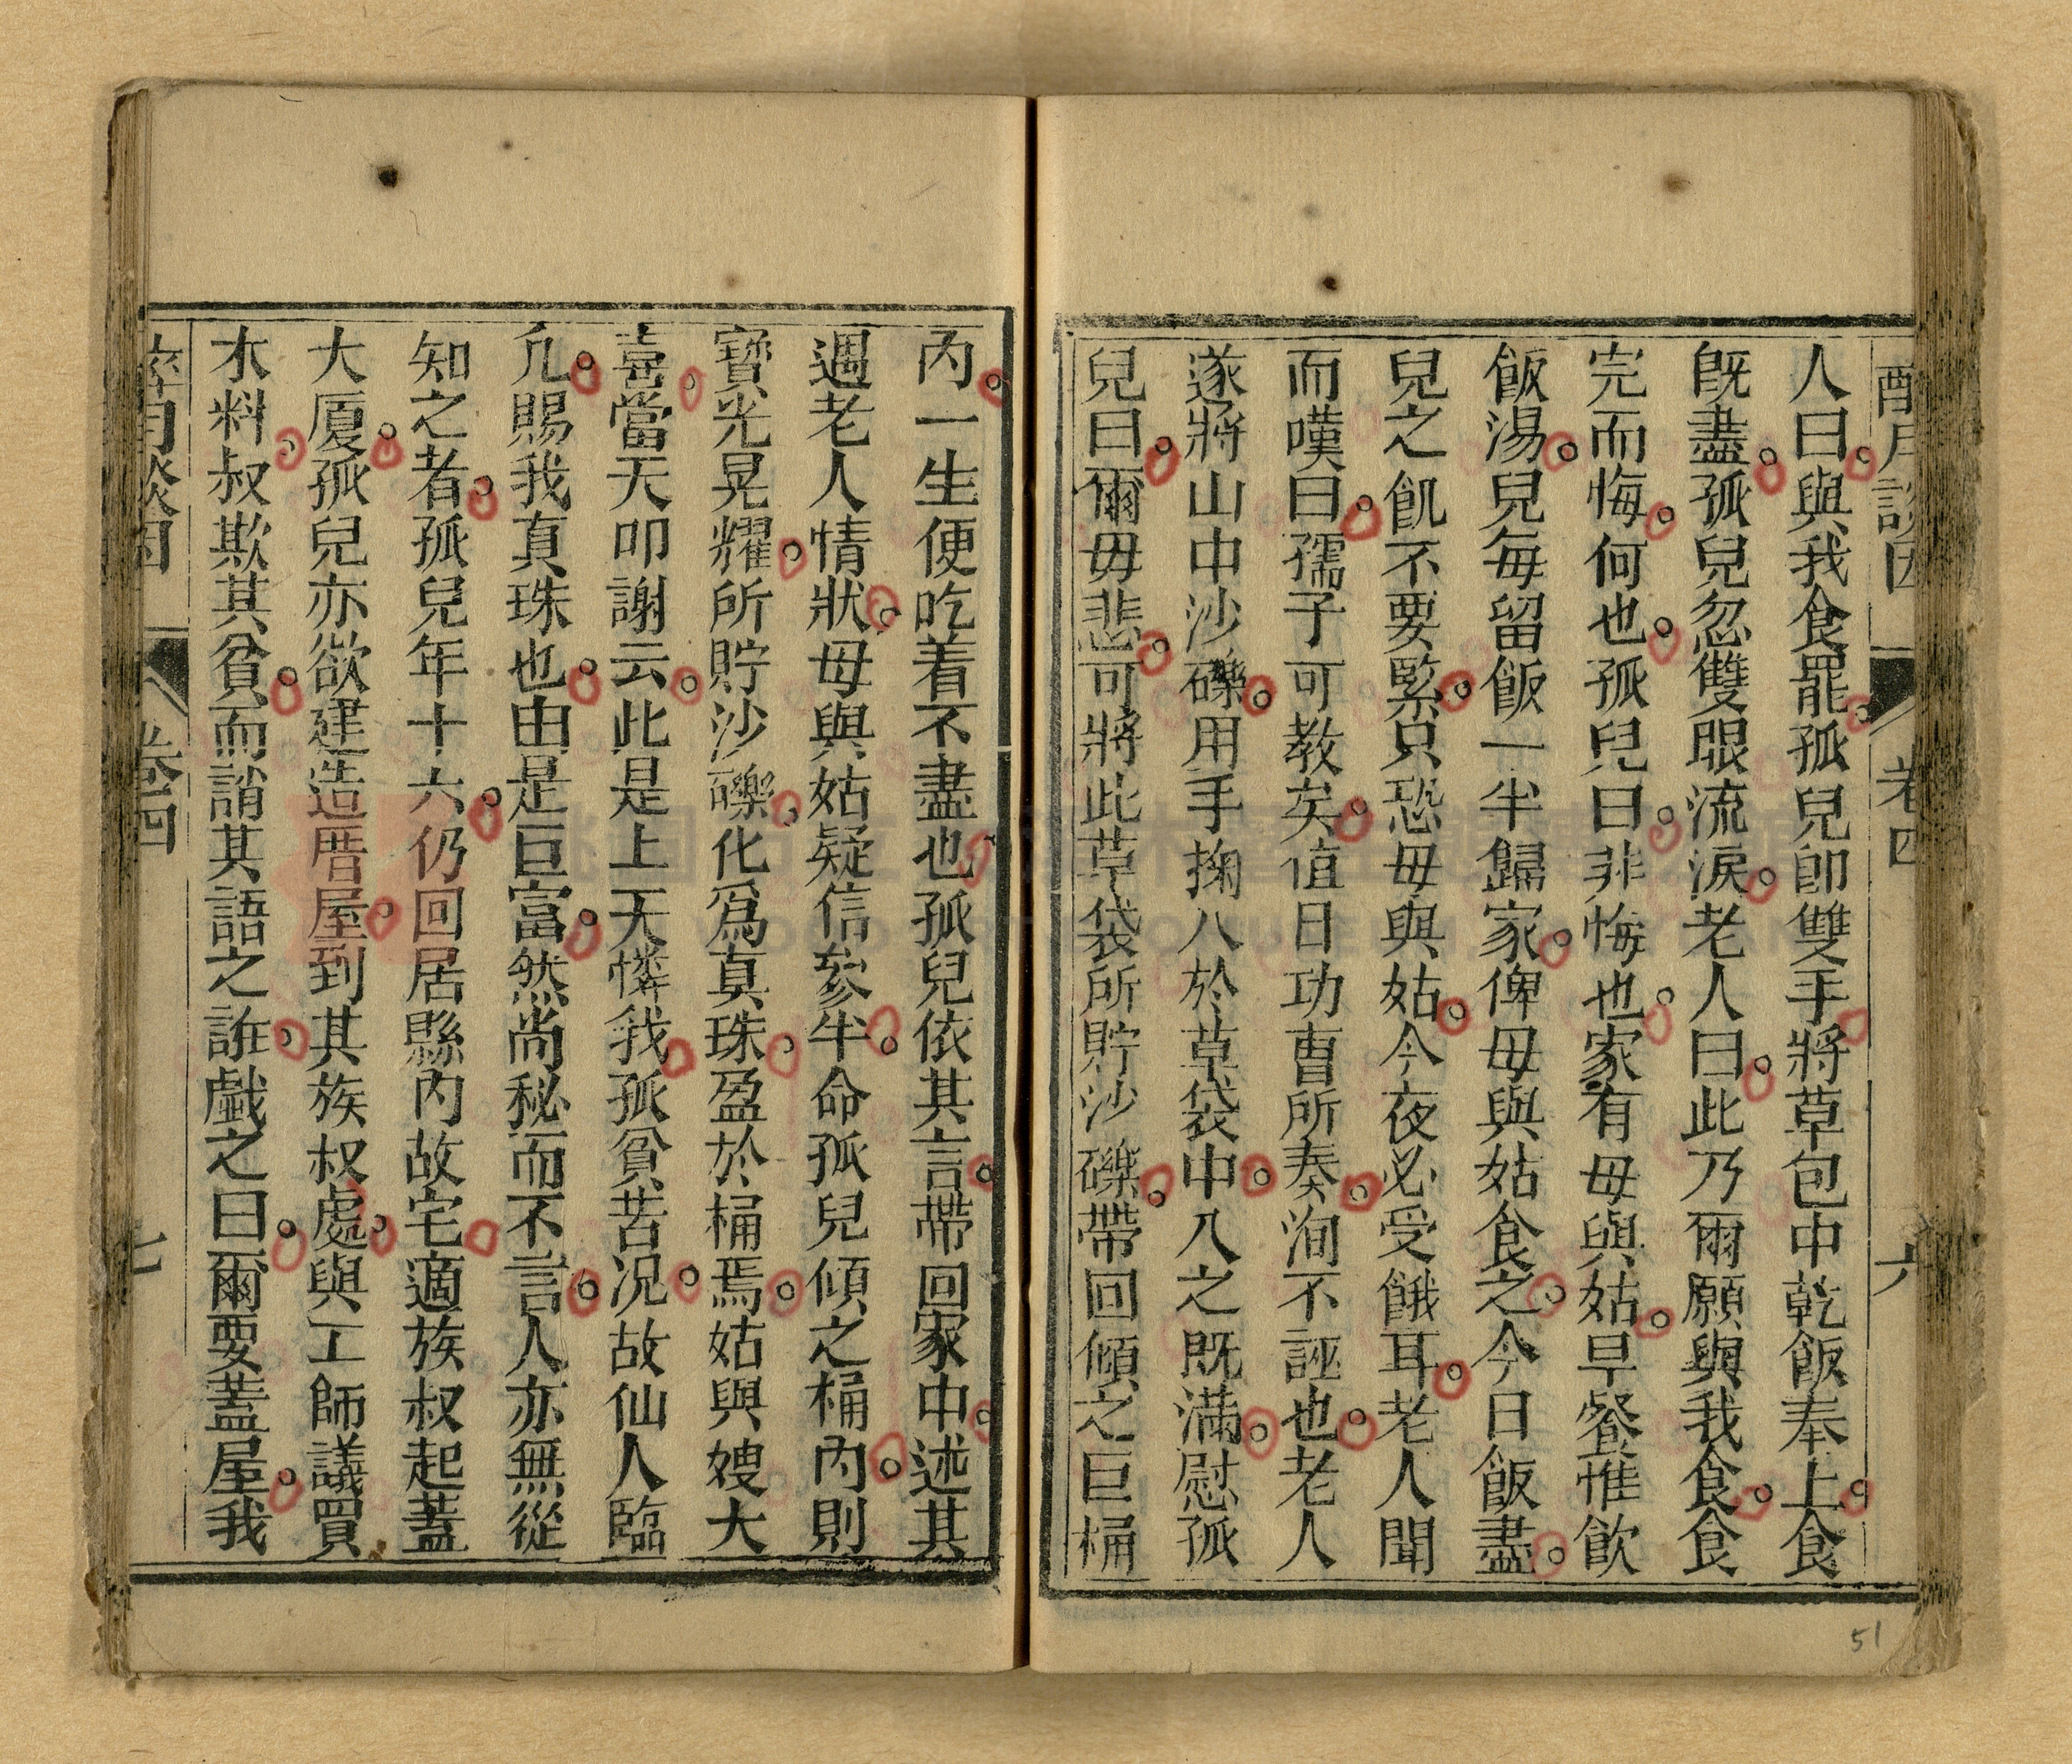 酔月談因 卷四 六
人曰與我食罷孤兒卽雙手將草包中乾飯奉上食
旣盡孤兒忽雙眼流淚老人曰此乃爾願與我食食
完而悔何也孤兒曰非悔也家有母與姑早餐惟飮
飯湯兒每留飯一半歸家俾母與姑食之今日飯盡
兒之飢不要緊只恐母與姑今夜必受餓耳老人聞
而嘆曰孺子可教矣值日功曹所奏洵不誣也老人
遂將山中沙礫用手掬入於草袋中入之既滿慰孤
兒曰爾毋悲可將此草袋所貯沙礫帶回傾之巨桶
內一生便吃着不盡也孤兒依其言帶回家中述其
遇老人情狀母與姑疑信參半命孤兒傾之桶內則
寶光晃耀所貯沙礫化爲真珠盈於桶焉姑與嫂大
喜當天叩謝云此是上天憐我孤貧苦况故仙人臨
凢賜我真珠也由是巨富然尚秘而不言人亦無從
知之者孤兒年十六仍回居縣內故宅適族叔起蓋
大厦孤兒亦欲建造厝屋到其族叔處與工師議買
木料叔欺其貧而誚其語之誑戲之曰爾要蓋屋我
酔月談因 卷四 七
51